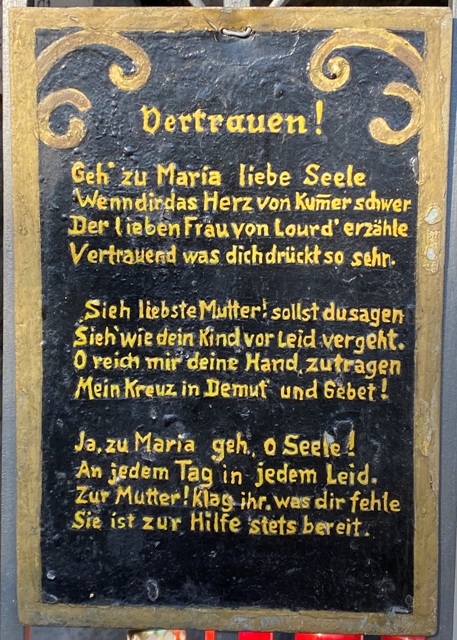 Vertrauen!
Geh' zu Maria liebe Seele
Wenn dir das Herz von Kum̅er schwer
Der lieben Frau von Lourd' erzähle
Vertrauend was dich drückt so sehr.
Sieh liebste Mutter! sollst du sagen
Sieh' wie dein Kind vor Leid vergeht.
O reich mir deine Hand, zu tragen
Mein Kreuz in Demut' und Gebet!
Ja, zu Maria geh, o Seele!
An jedem Tag in jedem Leid.
Zur Mutter! klag ihr, was dir fehle
Sie ist zur Hilfe stets bereit.